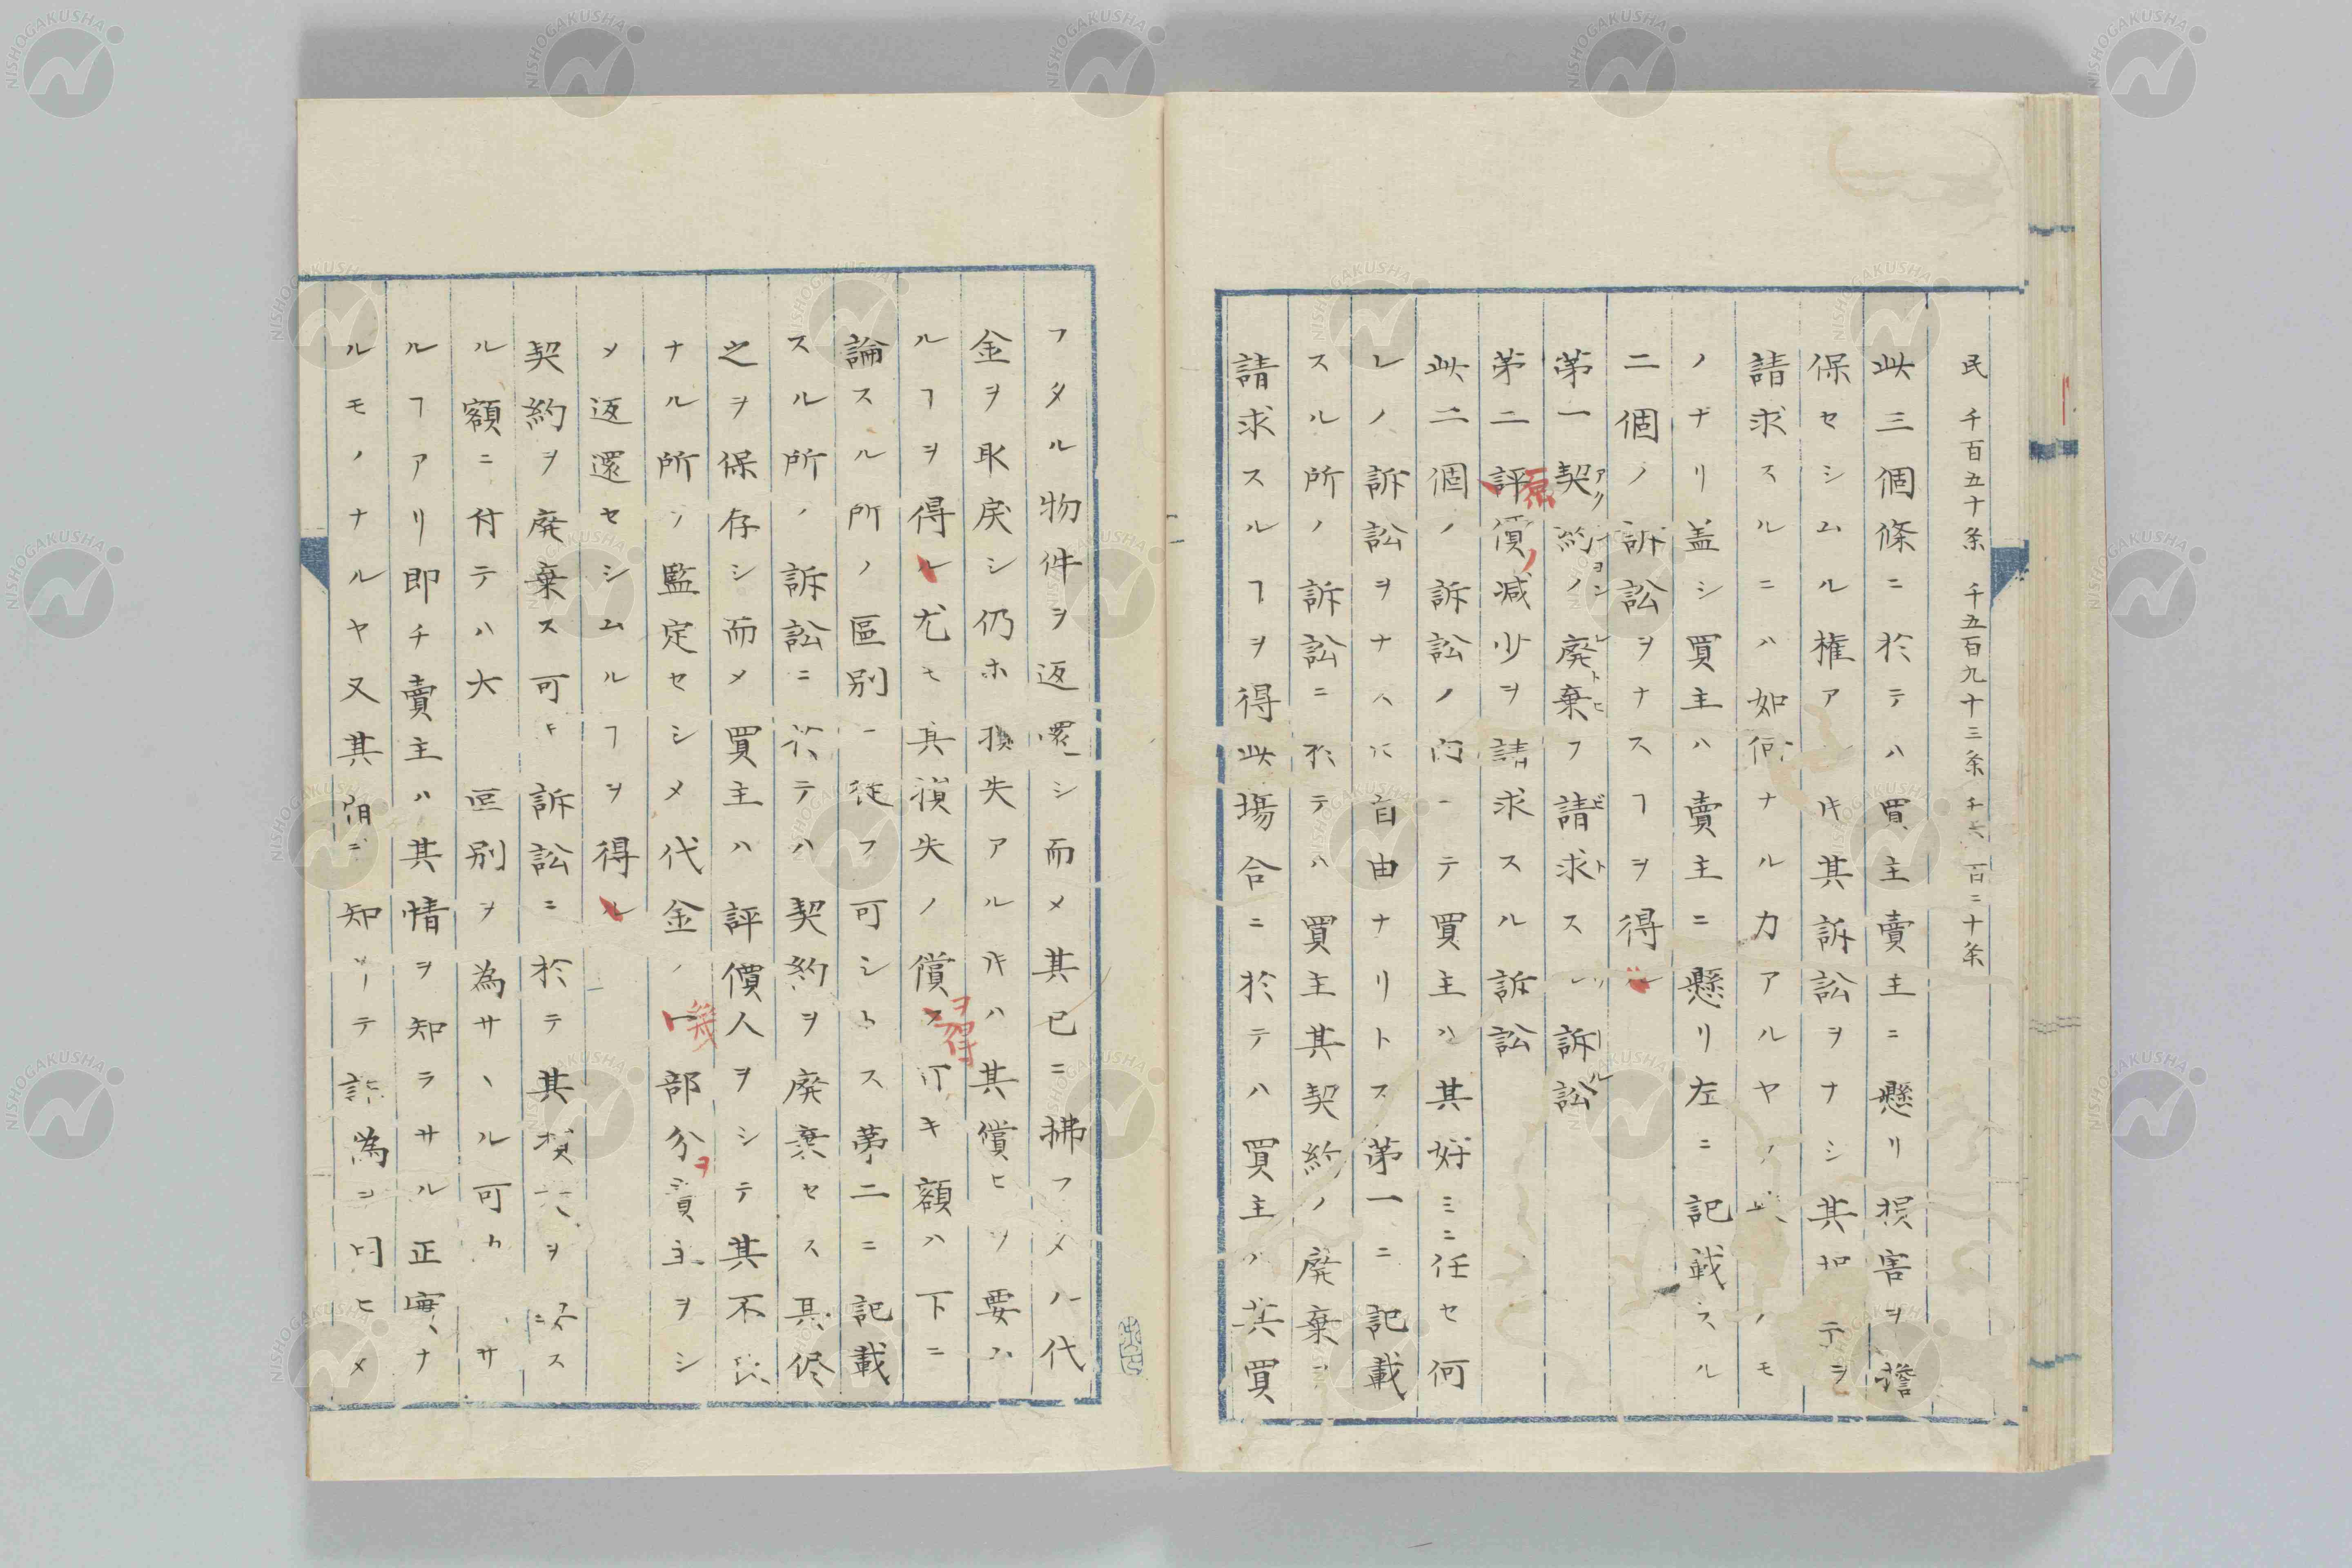 民 千百五十条 千五百九十三条 千六百二十条
此三個條ニ於テハ買主賣主ニ懸リ損害ヲ擔
保セシムル権アルキ其訴訟ヲナシ其如テヲ
請求スルニハ如何ナルカアルヤノモ
ノナリ盖シ買主ハ賣主ニ懸リ左ニ記載スル
二個ノ訴訟ヲナスヿヲ得ル
第一契約ノ廃棄ヲ請求スル訴訟
アクションレトヒビトリール
第二評價減少ヲ請求スル訴訟
原
ノ
此二個ノ訴訟ノ内ニテ買主ハ其好ミニ任セ何
レノ訴訟ヲナスモ自由ナリトス第一ニ記載
スル所ノ訴訟ニ於テハ買主其契約ノ廃棄ヲ
請求スルヿヲ得此場合ニ於テハ買主ハ其買
フタル物件ヲ返還シ而メ其已ニ拂フタル代
金ヲ取戻シ仍ホ損失アルキハ其償ヒヲ要ム
ルヿヲ得ル尤モ其損失ノ償ス可キ額ハ下ニ
ヲ得
論スル所ノ區別ニ従フ可シトス第二ニ記載
スル所ノ訴訟ニ於テハ契約ヲ廃棄セス其侭
之ヲ保存シ而メ買主ハ評價人ヲシテ其不
ナル所ヲ監定セシメ代金ノ一部分賣主ヲシ
幾
ヲ
メ返還セシムルヿヲ得ル
契約ヲ廃棄ス可キ訴訟ニ於テ其損失ヲス
ル額ニ付テハ大區別ヲ為サヽル可カラサ
ルヿアリ即チ賣主ハ其情ヲ知ラサル正實ナ
ルモノナルヤ又其情ヲ知リテ詐偽ヲ用ヒメ